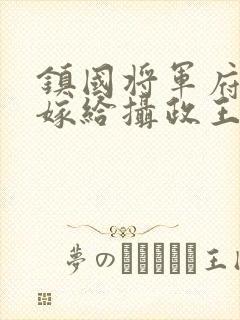 鎮國将軍府
嫁給攝政王
夢の王